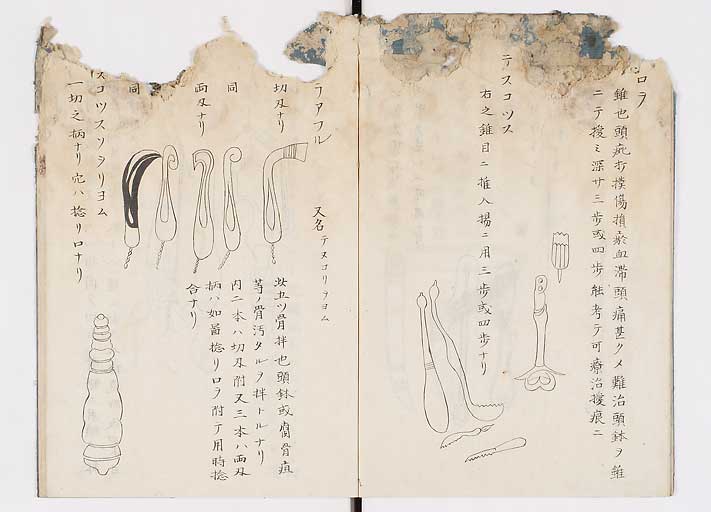 ロラ
錐也頭疵打撲傷損瘀血滞頭痛甚クメ難治頭鉢ヲ錐
ニテ揉ミ深サ三歩或四歩能考テ可療治揉痕ニ
テスコツス
右之錐目ニ推入揚ニ用三歩或四歩ナリ
ラアフル
又名テスコリヲヨム
切刄ナリ
同
両刄ナリ
同
此五ツ骨拌也頭鉢或腐骨疽
等ノ骨汚タルヲ拌トルナリ
内二本ハ切刄附又三本ハ両刄
柄ハ如畫捻リ口ヲ附テ用時捻
合ナリ
スコツスソヲリヨム
一切之柄ナリ穴ハ捻リ口ナリ